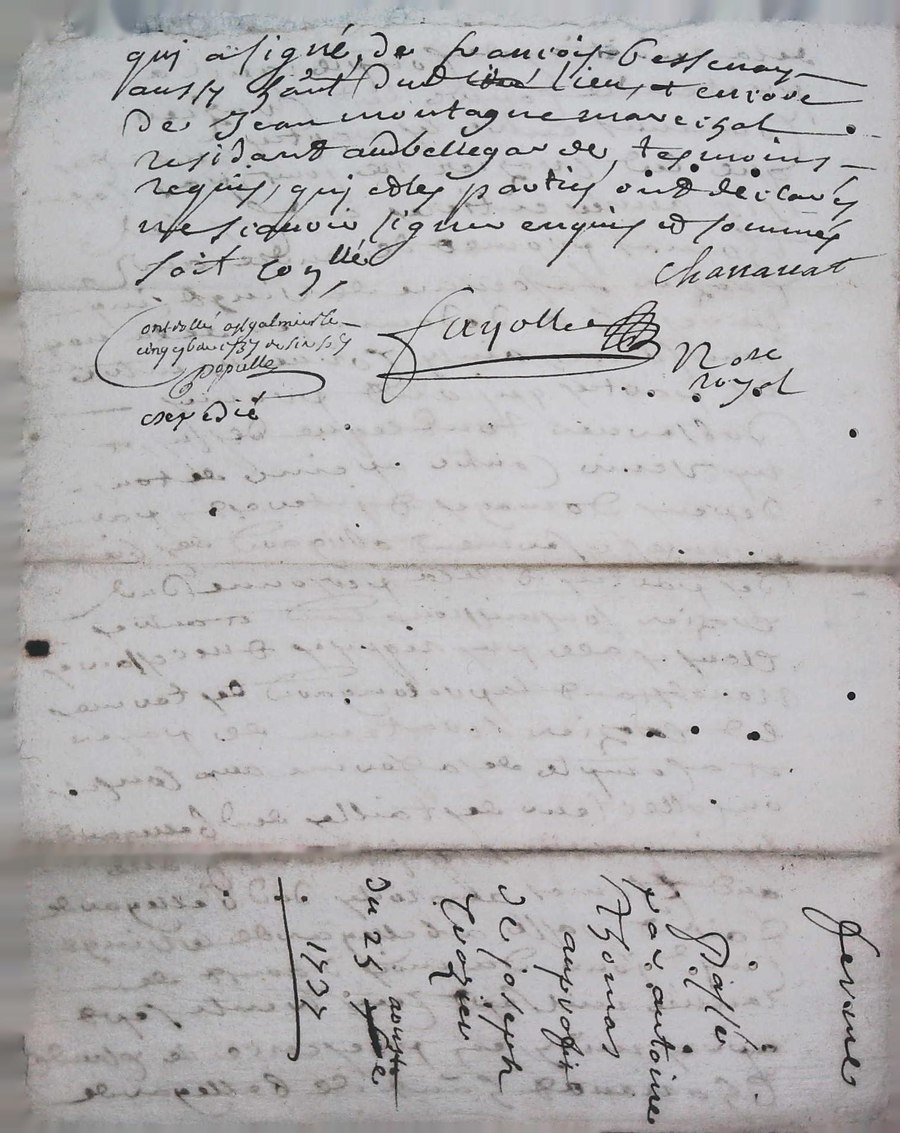 qui a signé, de francois bessenay
aussy hant dud lieu, et encore
de Jean montagne marechal
residant aud bellegarde, tesmoins
requis, qui et les parties ont declarés
ne scavoir signer enquis et sommés
soit conllé
Chananat
controllé a st galmier le
cinq 7bre 1737
papulle
expedié
fayolle
Nore
royal
ferme
passé
par antoine
thomas
au profit
de joseph
crozier
du 25 aoust
1737